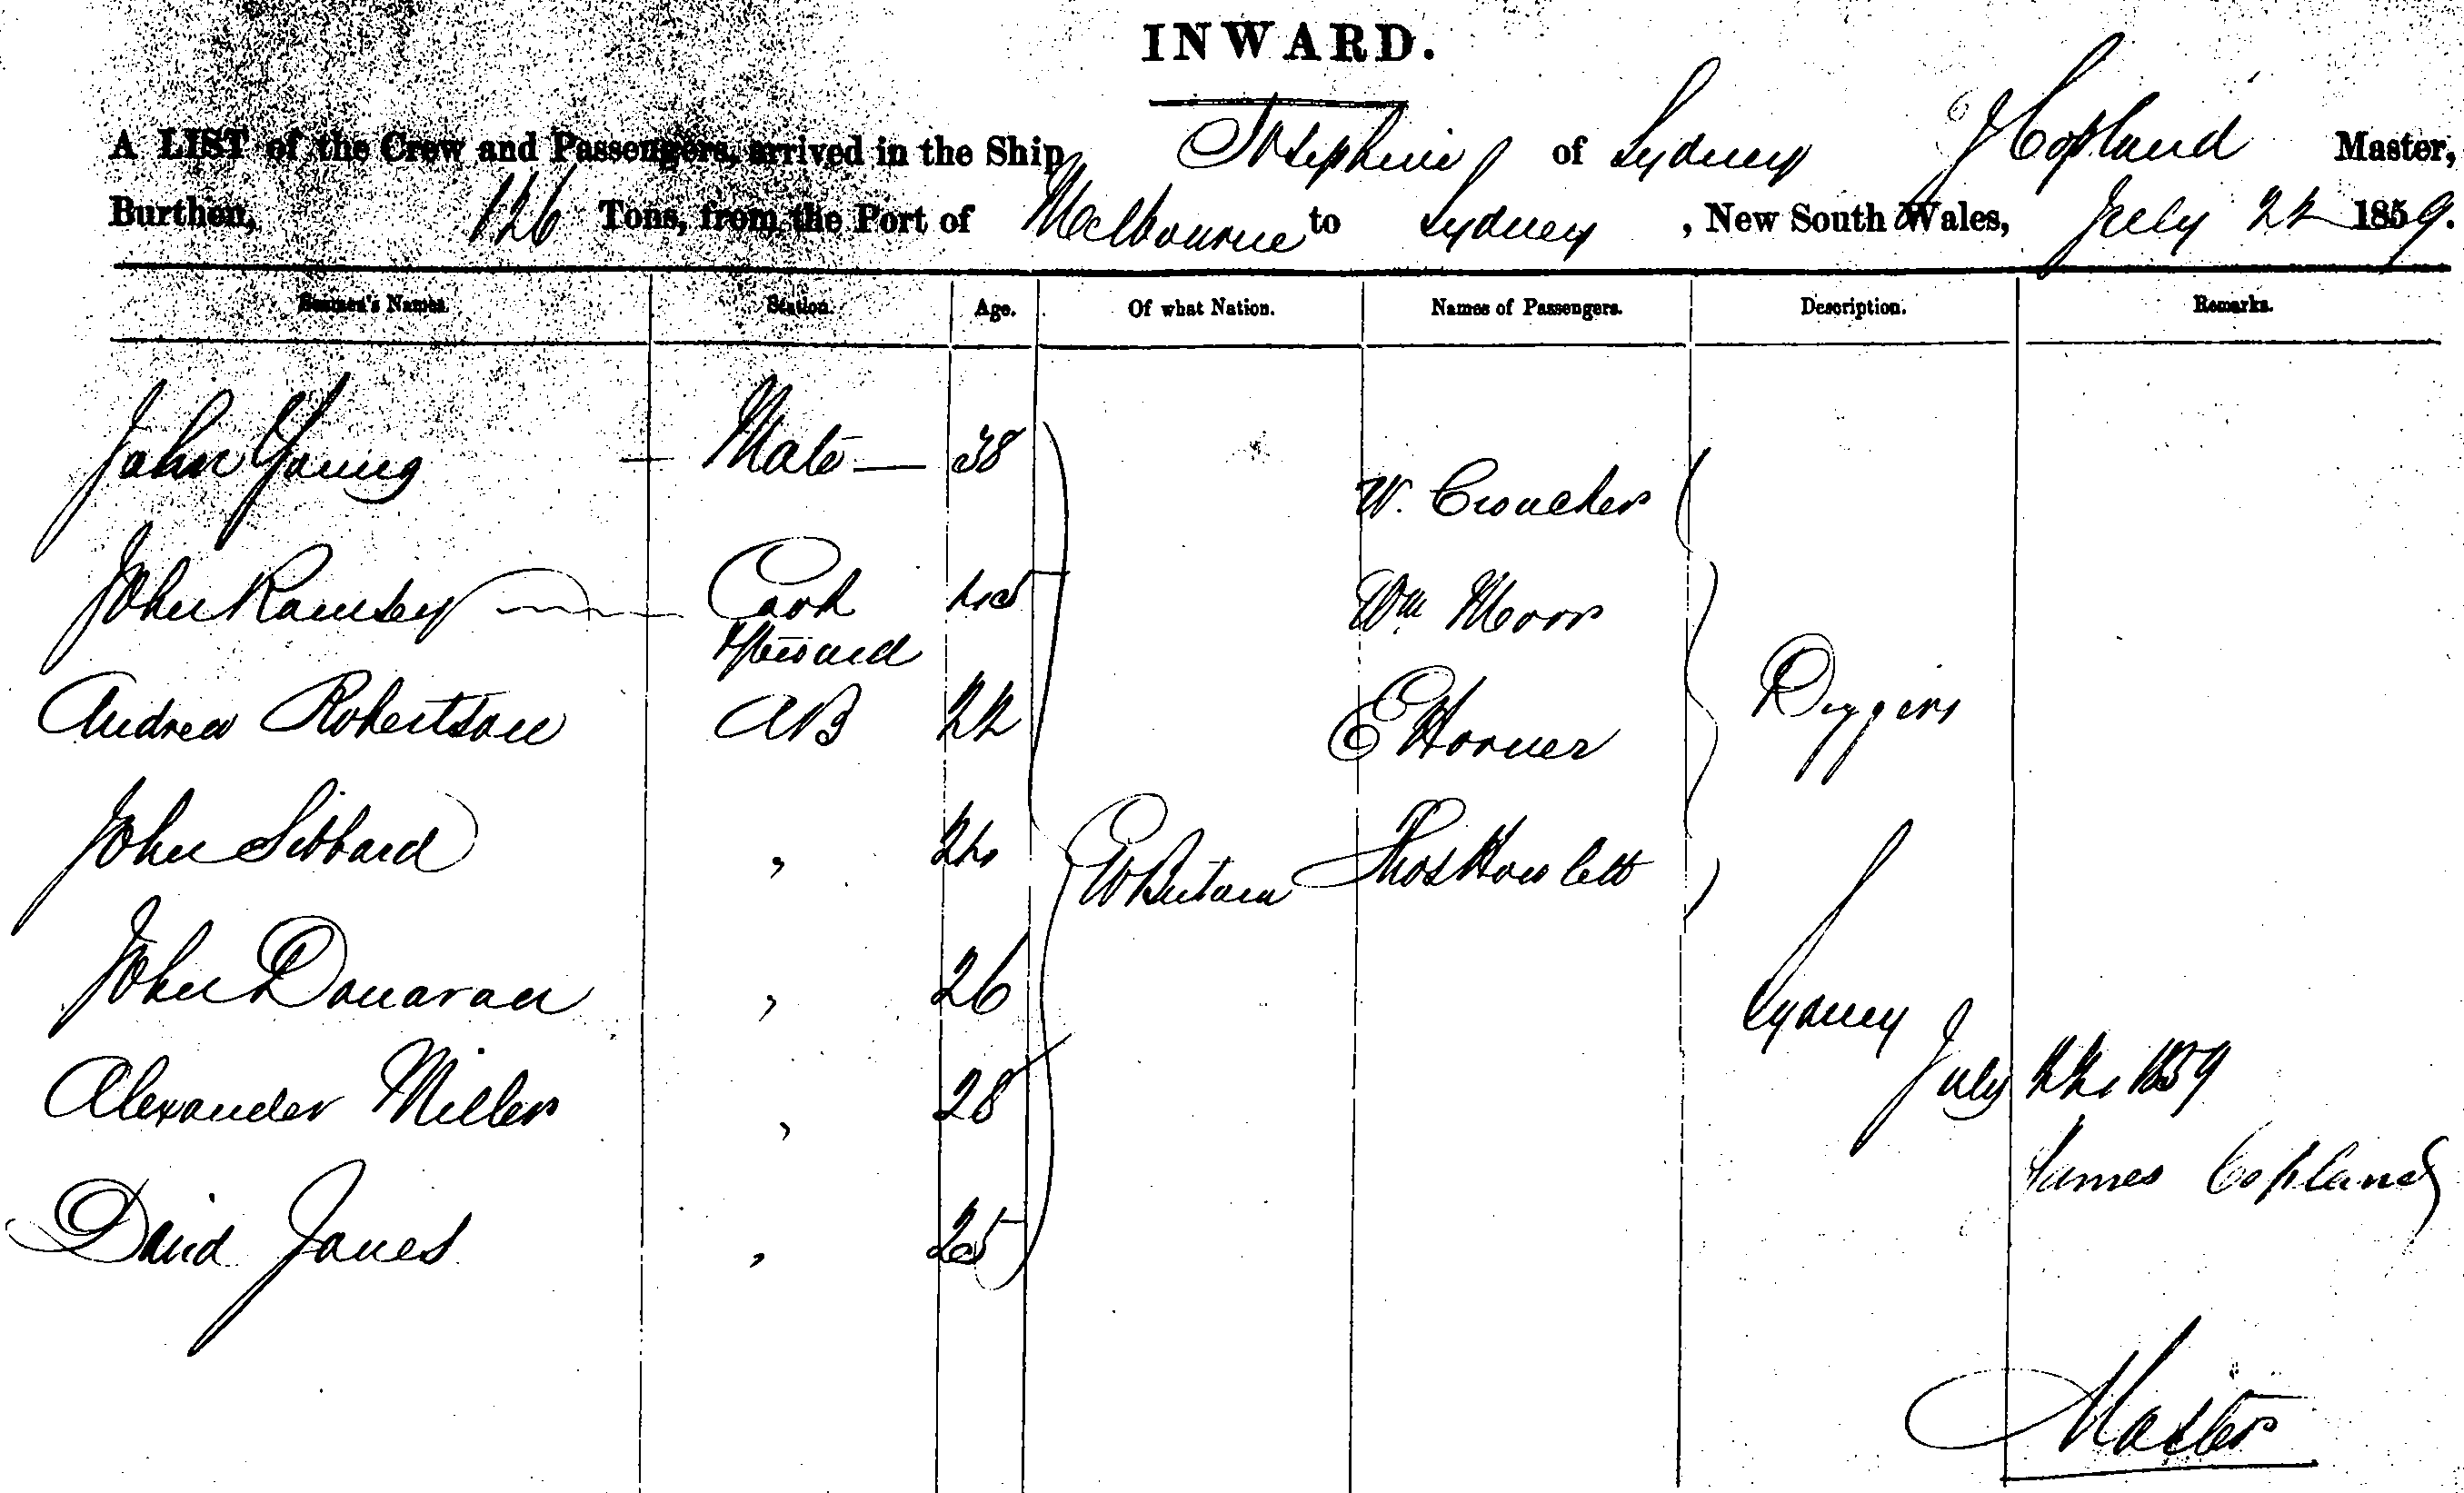 INWARD.
A LIST of the Crew and Passengers, arrived in the Ship Josephine of Sydney J Copland Master,
Burthen, 126 Tons, from the Port of Melbourne to Sydney, New South Wales, July 22 1859.
Seamen's Names. Station. Age. Of what Nation. Names of Passengers. Description. Remarks.
John Young — Mate — 38
W. Croucher
John Ramsey Cook 45 Wm Moor
& Steward
Andrew Robertson AB 22 E Horner Diggers
John Sibbard " 24 G Britain Thos Howlett
John Donavan " 26 Sydney
Alexander Miller " 28 July 22, 1859
James Copland
David Jones " 25
Master